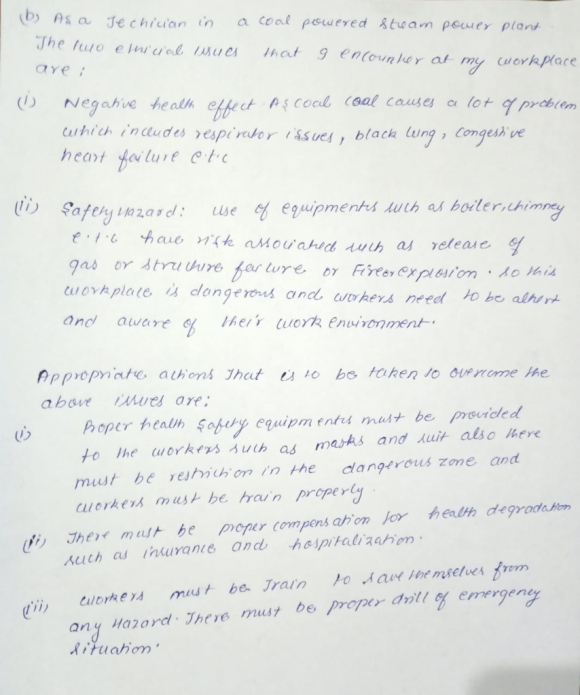 (b) As a Techician in a coal powered steam power plant
The two ethicial issues that I encounter at my workplace
are :
(i) Negative health effect. As coal coal causes a lot of problem
which includes respirator issues, black lung, congestive
heart failure e.t.c
(ii) Safety Hazard : Use of equipments such as boiler, chimney
e.t.c have risk associated such as release of
gas or structure failure or Fire or explosion. So this
workplace is dangerous and workers need to be alhert
and aware of their work environment.
Appropriate actions that is to be taken to overcome the
above issues are:
(i) Proper health safety equipments must be provided
to the workers such as masks and suit also there
must be restriction in the dangerous zone and
workers must be train properly.
(ii) There must be proper compensation for health degradation
such as insurance and hospitalization.
(iii) workers must be train to save themselves from
any Hazard. There must be proper drill of emergency
situation.